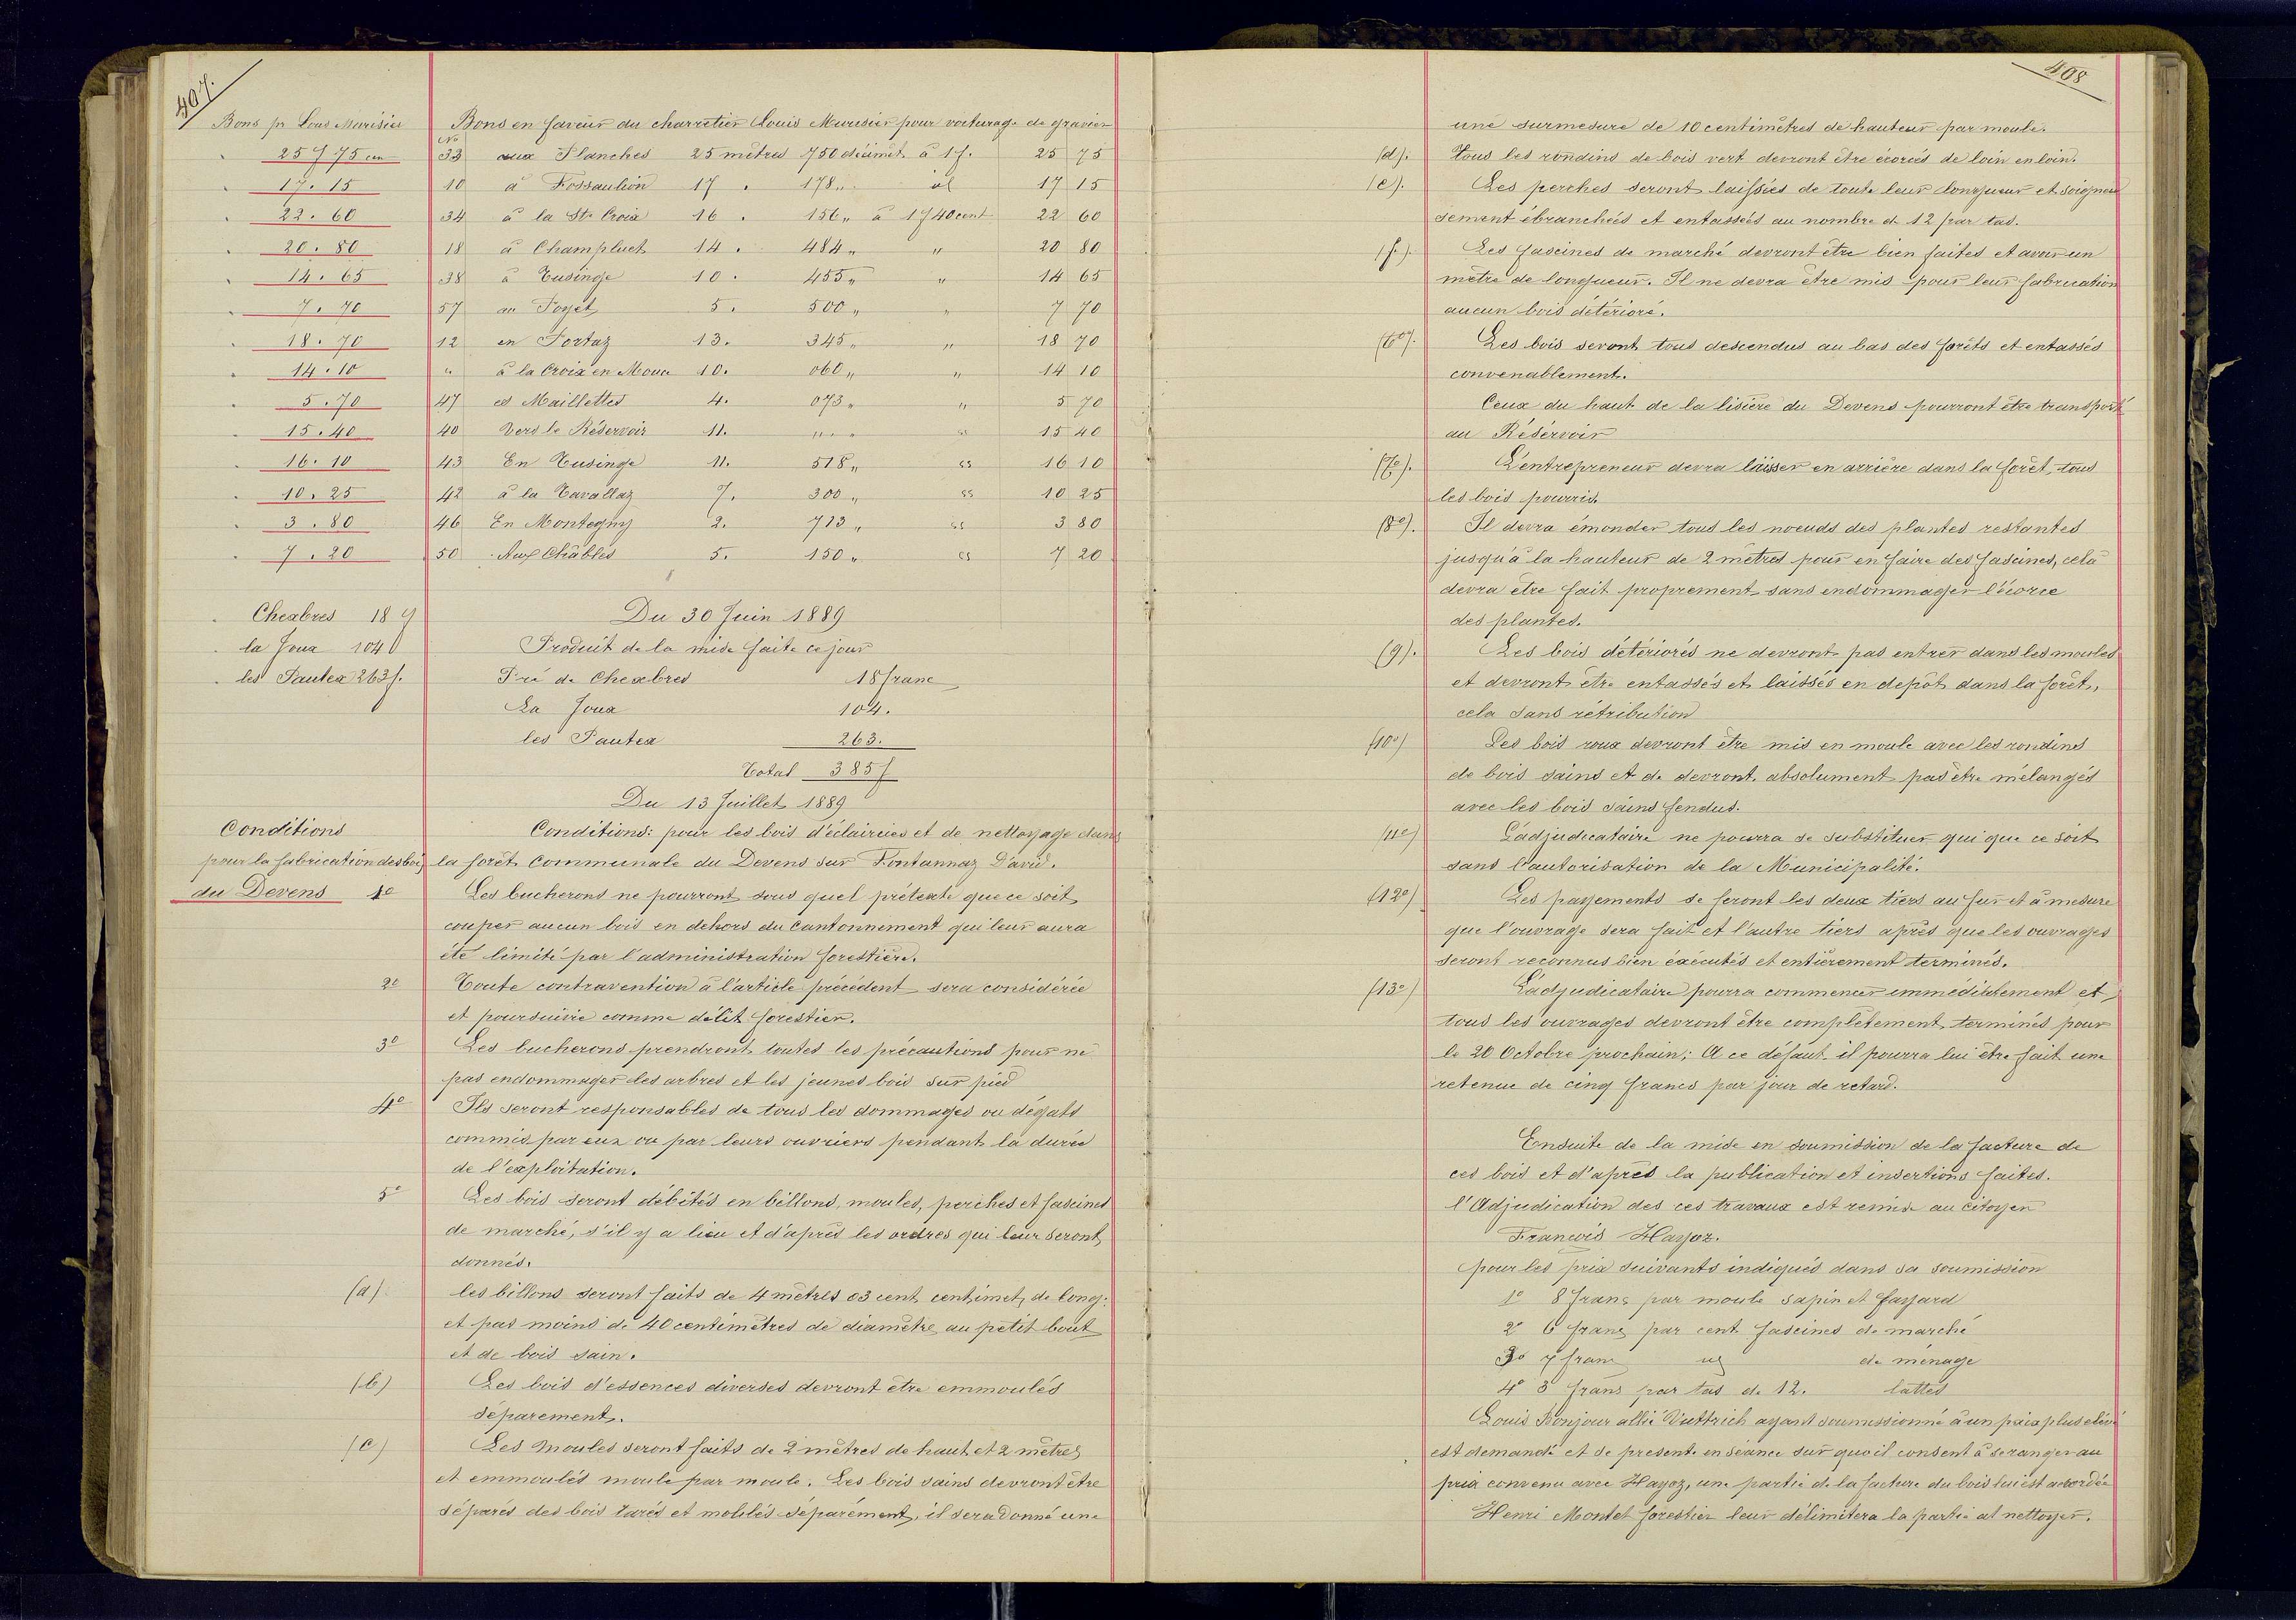 407.
Bons pr Louis Murisier Bons en faveur du charretier Louis Murisier pour voiturage de gravier
No
25 f 75 cen 33 aux Planches 25 mètres 750 décimet. à 1 f. 25 75
17. 15 10 à Fossaulion 17 . 178 " id 17 15
22. 60 34 à la Ste Croix 16 . 156 " à 1 f 40 cent 22 60
20. 80 18 à Champluet 14 . 484 " " 20 80
14. 65 38 à Eusinge 10 . 455 " " 14 65
7. 70 57 au Poyet 5. 500 " " 7 70
18. 70 12 en Portaz 13. 345 " " 18 70
14. 10 " à la Croix en Moua 10. 060 " " 14 10
5. 70 47 es Maillettes 4. 073 " " 5 70
15. 40 40 Vers le Réservoir 11. " " " 15 40
16. 10 43 En Eusinge 11. 518 " " 16 10
10. 25 42 à la Cavallaz 7. 300 " " 10 25
3. 80 46 En Montagny 2. 713 " " 3 80
7. 20 50 Aux Châbles 5. 150 " " 7 20
Chexbres 18 f Du 30 Juin 1889
la Joux 104 f Produit de la mise faite ce jour
les Pautex 263 f. Pré de Chexbres 18 franc
La Joux 104.
les Pautex 263.
Total 385 f
Du 13 Juillet 1889
Conditions Conditions: pour les bois d'éclaircies et de nettoyage dans
pour la fabrication des bois la forêt Communale du Devens sur Fontannaz David.
du Devens 1o Les bucherons ne pourront sous quel prétexte que ce soit
couper aucun bois en dehors du cantonnement qui leur aura
été limité par l'administration forestière.
2o Toute contravention à l'article précédent sera considérée
et poursuivie comme délit forestier.
3o Les bucherons prendront toutes les précautions pour ne
pas endommager les arbres et les jeunes bois sur pied
4o Ils seront responsables de tous les dommages ou dégats
commis par eux ou par leurs ouvriers pendant la durée
de l'exploitation.
5o Les bois seront débités en billons, moules, perches et fascines
de marché, s'il y a lieu et d'après les ordres qui leur seront
donnés.
(a) les billons seront faits de 4 mètres 03 cent centimet, de long.
et pas moins de 40 centimètres de diamètre au petit bout
et de bois sain.
(b) Les bois d'essences diverses devront être emmoulés
séparement.
(c) Les moules seront faits de 2 mètres de haut et 2 mètres
et emmoulés moule par moule. Les bois sains devront être
séparés des bois tarés et moulés séparément, il sera donné une
408
une surmesure de 10 centimètres de hauteur par moule.
(d). Tous les rondins de bois vert devront être écorcés de loin en loin.
(e). Les perches seront laissées de toute leur longueur et soigneu
sement ébranchées et entassées au nombre de 12 par tas.
(f). Les fascines de marché devront être bien faites et avoir un
mètre de longueur. Il ne devra être mis pour leur fabrication
aucun bois détérioré.
(6o). Les bois seront tous descendus au bas des forêts et entassés
convenablement.
Ceux du haut de la lisière du Devens pourront être transporté
au Réservoir
(7o). L'entrepreneur devra laisser en arrière dans la forêt, tous
les bois pourris.
(8o). Il devra émonder tous les noeuds des plantes restantes
jusqu'à la hauteur de 2 mètres pour en faire des fascines, cela
devra être fait proprement sans endommager l'écorce
des plantes.
(9). Les bois détériorés ne devront pas entrer dans les moules
et devront être entassés et laissés en depôt dans la forêt,
cela sans rétribution
(10o) Les bois roux devront être mis en moule avec les rondins
de bois sains et de devront absolument pas être mélangés
avec les bois sains fendus.
(11o) L'adjudicataire ne pourra se substituer qui que ce soit
sans l'autorisation de la Municipalité.
(12o) Les payements se feront les deux tiers au fur et à mesure
que l'ouvrage sera fait et l'autre tiers après que les ouvrages
seront reconnus bien exécutés et entièrement terminés.
(13o) L'adjudicataire pourra commencer immédiatement et
tous les ouvrages devront être complètement terminés pour
le 20 Octobre prochain; A ce défaut il pourra lui être fait une
retenue de cinq francs par jour de retard.
Ensuite de la mise en soumission de la facture de
ces bois et d'après la publication et insertions faites.
l'Adjudication des ces travaux est remise au citoyen
Francois Hayoz.
pour les prix suivants indiqués dans sa soumission
1o 8 franc par moule sapin et fayard
2o 6 franc par cent fascines de marché
3o 7 franc de ménage
4o 3 franc par tas de 12. lattes
Louis Bonjour allié Vuttrich ayant soumissionné à un prix plus élevé
est demandé et se presente en séance sur quoi il consent à se ranger au
prix convenu avec Hayoz, une partie de la facture du bois lui est accordée
Henri Montet forestier leur délimitera la partie at nettoyer.